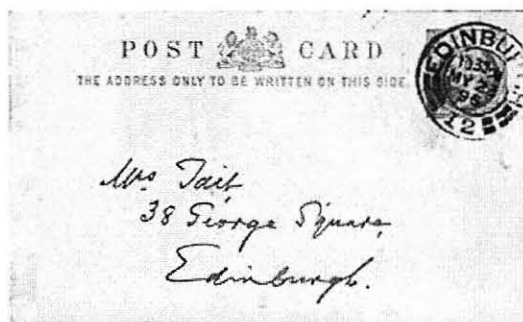 POST CARD
THE ADDRESS ONLY TO BE WRITTEN ON THIS SIDE.
EDINBU
MY 2
12
Mrs Tait,
38 George Square,
Edinburgh.